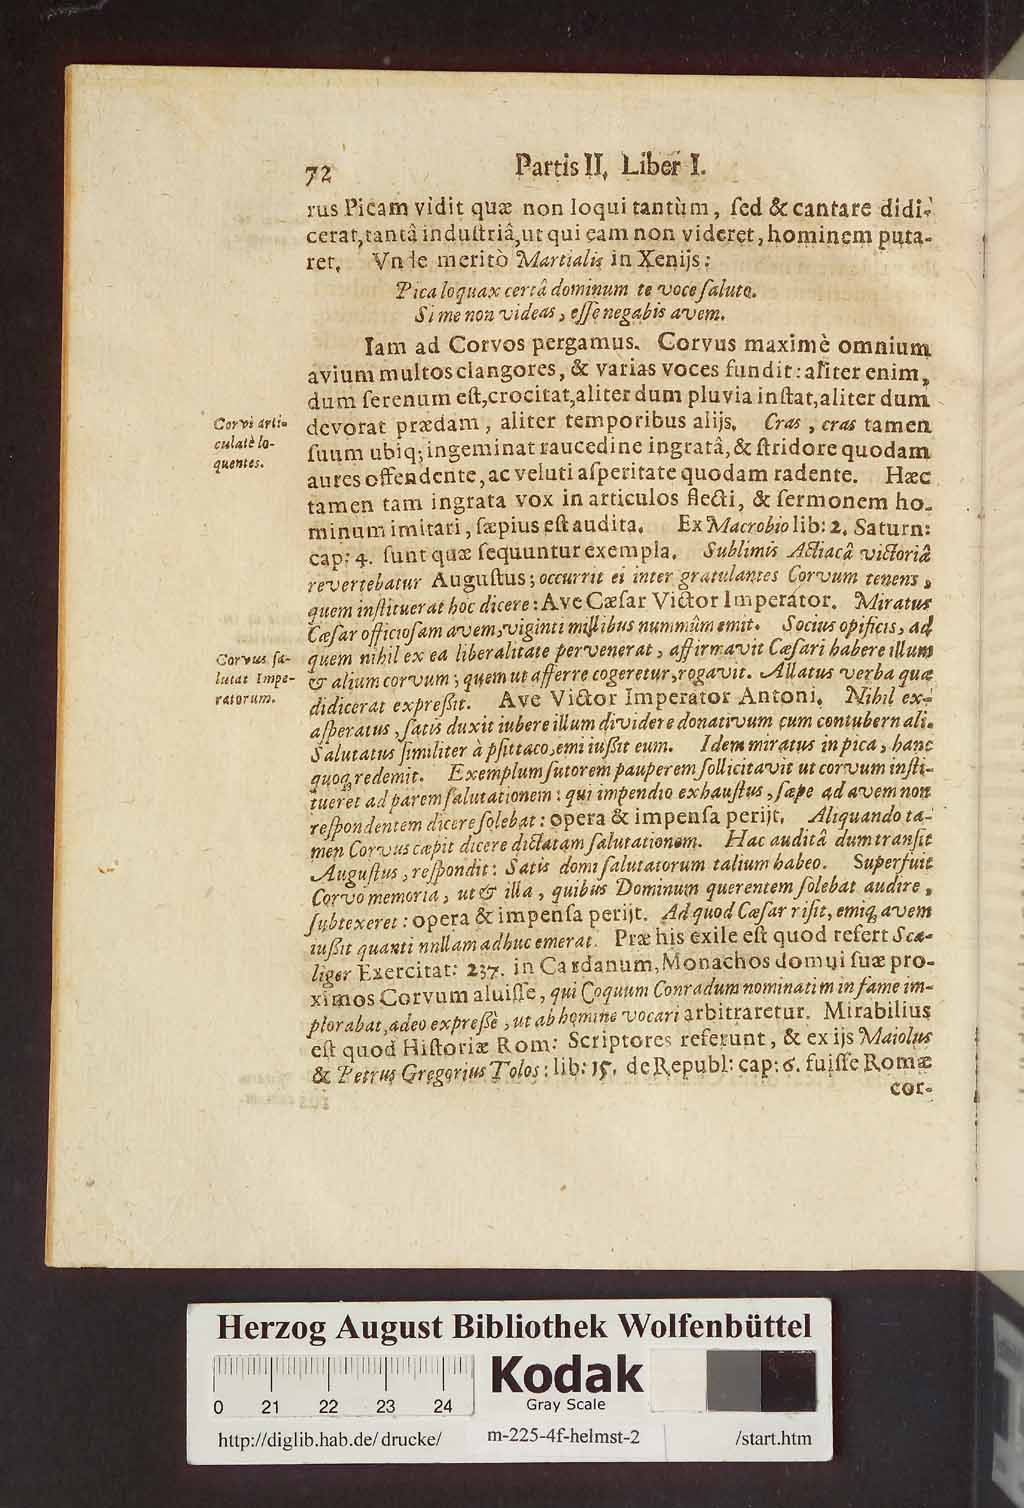 72 Partis II. Liber I.
rus Picam vidit quæ non loqui tantùm, ſed & cantare didi-
cerat, tantâ induſtriâ, ut qui eam non videret, hominem puta-
ret. Vnde meritò Martialis in Xenijs:
Pica loquax certâ dominum te voce ſaluto.
Si me non videas, eſſe negabis avem.
Iam ad Corvos pergamus. Corvus maximè omnium
avium multos clangores, & varias voces fundit: aliter enim,
dum ſerenum eſt, crocitat, aliter dum pluvia inſtat, aliter dum
devorat prædam, aliter temporibus alijs. Cras, cras tamen
ſuum ubiq; ingeminat raucedine ingratâ, & ſtridore quodam
aures offendente, ac veluti aſperitate quodam radente. Hæc
tamen tam ingrata vox in articulos flecti, & ſermonem ho-
minum imitari, ſæpius eſt audita. Ex Macrobio lib: 2. Saturn:
cap: 4. ſunt quæ ſequuntur exempla. Sublimis Actiacâ victoriâ
revertebatur Auguſtus; occurrit ei inter gratulantes Corvum tenens,
quem inſtituerat hoc dicere: Ave Cæſar Victor Imperator. Miratus
Cæſar officioſam avem, viginti millibus nummûm emit. Socius opificis, ad
quem nihil ex ea liberalitate pervenerat, affirmavit Cæſari habere illum
& alium corvum; quem ut afferre cogeretur, rogavit. Allatus verba quæ
didicerat expreſsit. Ave Victor Imperator Antoni. Nihil ex-
aſperatus, ſatis duxit iubere illum dividere donativum cum contubernali.
Salutatus ſimiliter à pſittaco, emi iuſsit eum. Idem miratus in pica, hanc
quoq; redemit. Exemplum ſutorem pauperem ſollicitavit ut corvum inſti-
tueret ad parem ſalutationem: qui impendio exhauſtus, ſæpe ad avem non
reſpondentem dicere ſolebat: opera & impenſa perijt. Aliquando ta-
men Corvus cæpit dicere dictatam ſalutationem. Hac auditâ dum tranſit
Auguſtus, reſpondit: Satis domi ſalutatorum talium habeo. Superfuit
Corvo memoria, ut & illa, quibus Dominum querentem ſolebat audire,
ſubtexeret: opera & impenſa perijt. Ad quod Cæſar riſit, emiq; avem
iuſsit quanti nnllam adhuc emerat. Præ his exile eſt quod refert Sca-
liger Exercitat: 237. in Cardanum, Monachos domui ſuæ pro-
ximos Corvum aluiſſe, qui Coquum Conradum nominatim in fame im-
plorabat, adeo expreſsè, ut ab homine vocari arbitraretur. Mirabilius
eſt quod Hiſtoriæ Rom: Scriptores referunt, & ex ijs Maiolus
& Petrus Gregorius Tolos: lib: 15. de Republ: cap: 6. fuiſſe Romæ
cor-
Corvi arti-
culatè lo-
quentes.
Corvus ſa-
lutat Impe-
ratorum.
Herzog August Bibliothek Wolfenbüttel
Kodak
Gray Scale
0 21 22 23 24
http://diglib.hab.de/drucke/ m-225-4f-helmst-2 /start.htm